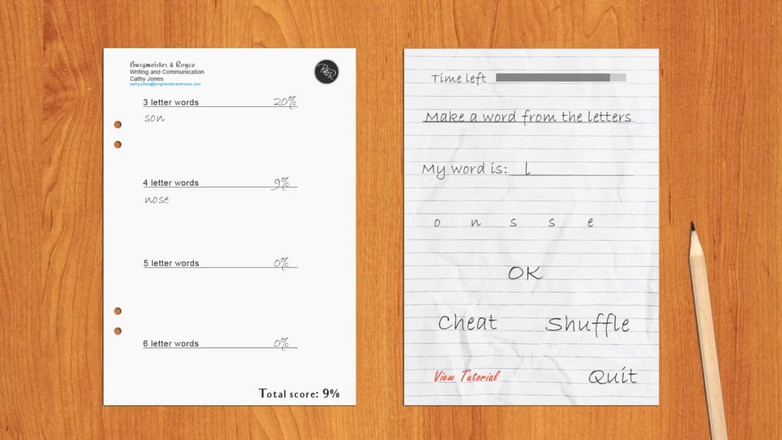 Burgmeister & Royce
Writing and Communication
Cathy Jones
B&R
3 letter words 20%
son
4 letter words 9%
nose
5 letter words 0%
6 letter words 0%
Total score: 9%
Time left
Make a word from the letters
My word is: l
o n s s e
OK
Cheat Shuffle
View Tutorial Quit